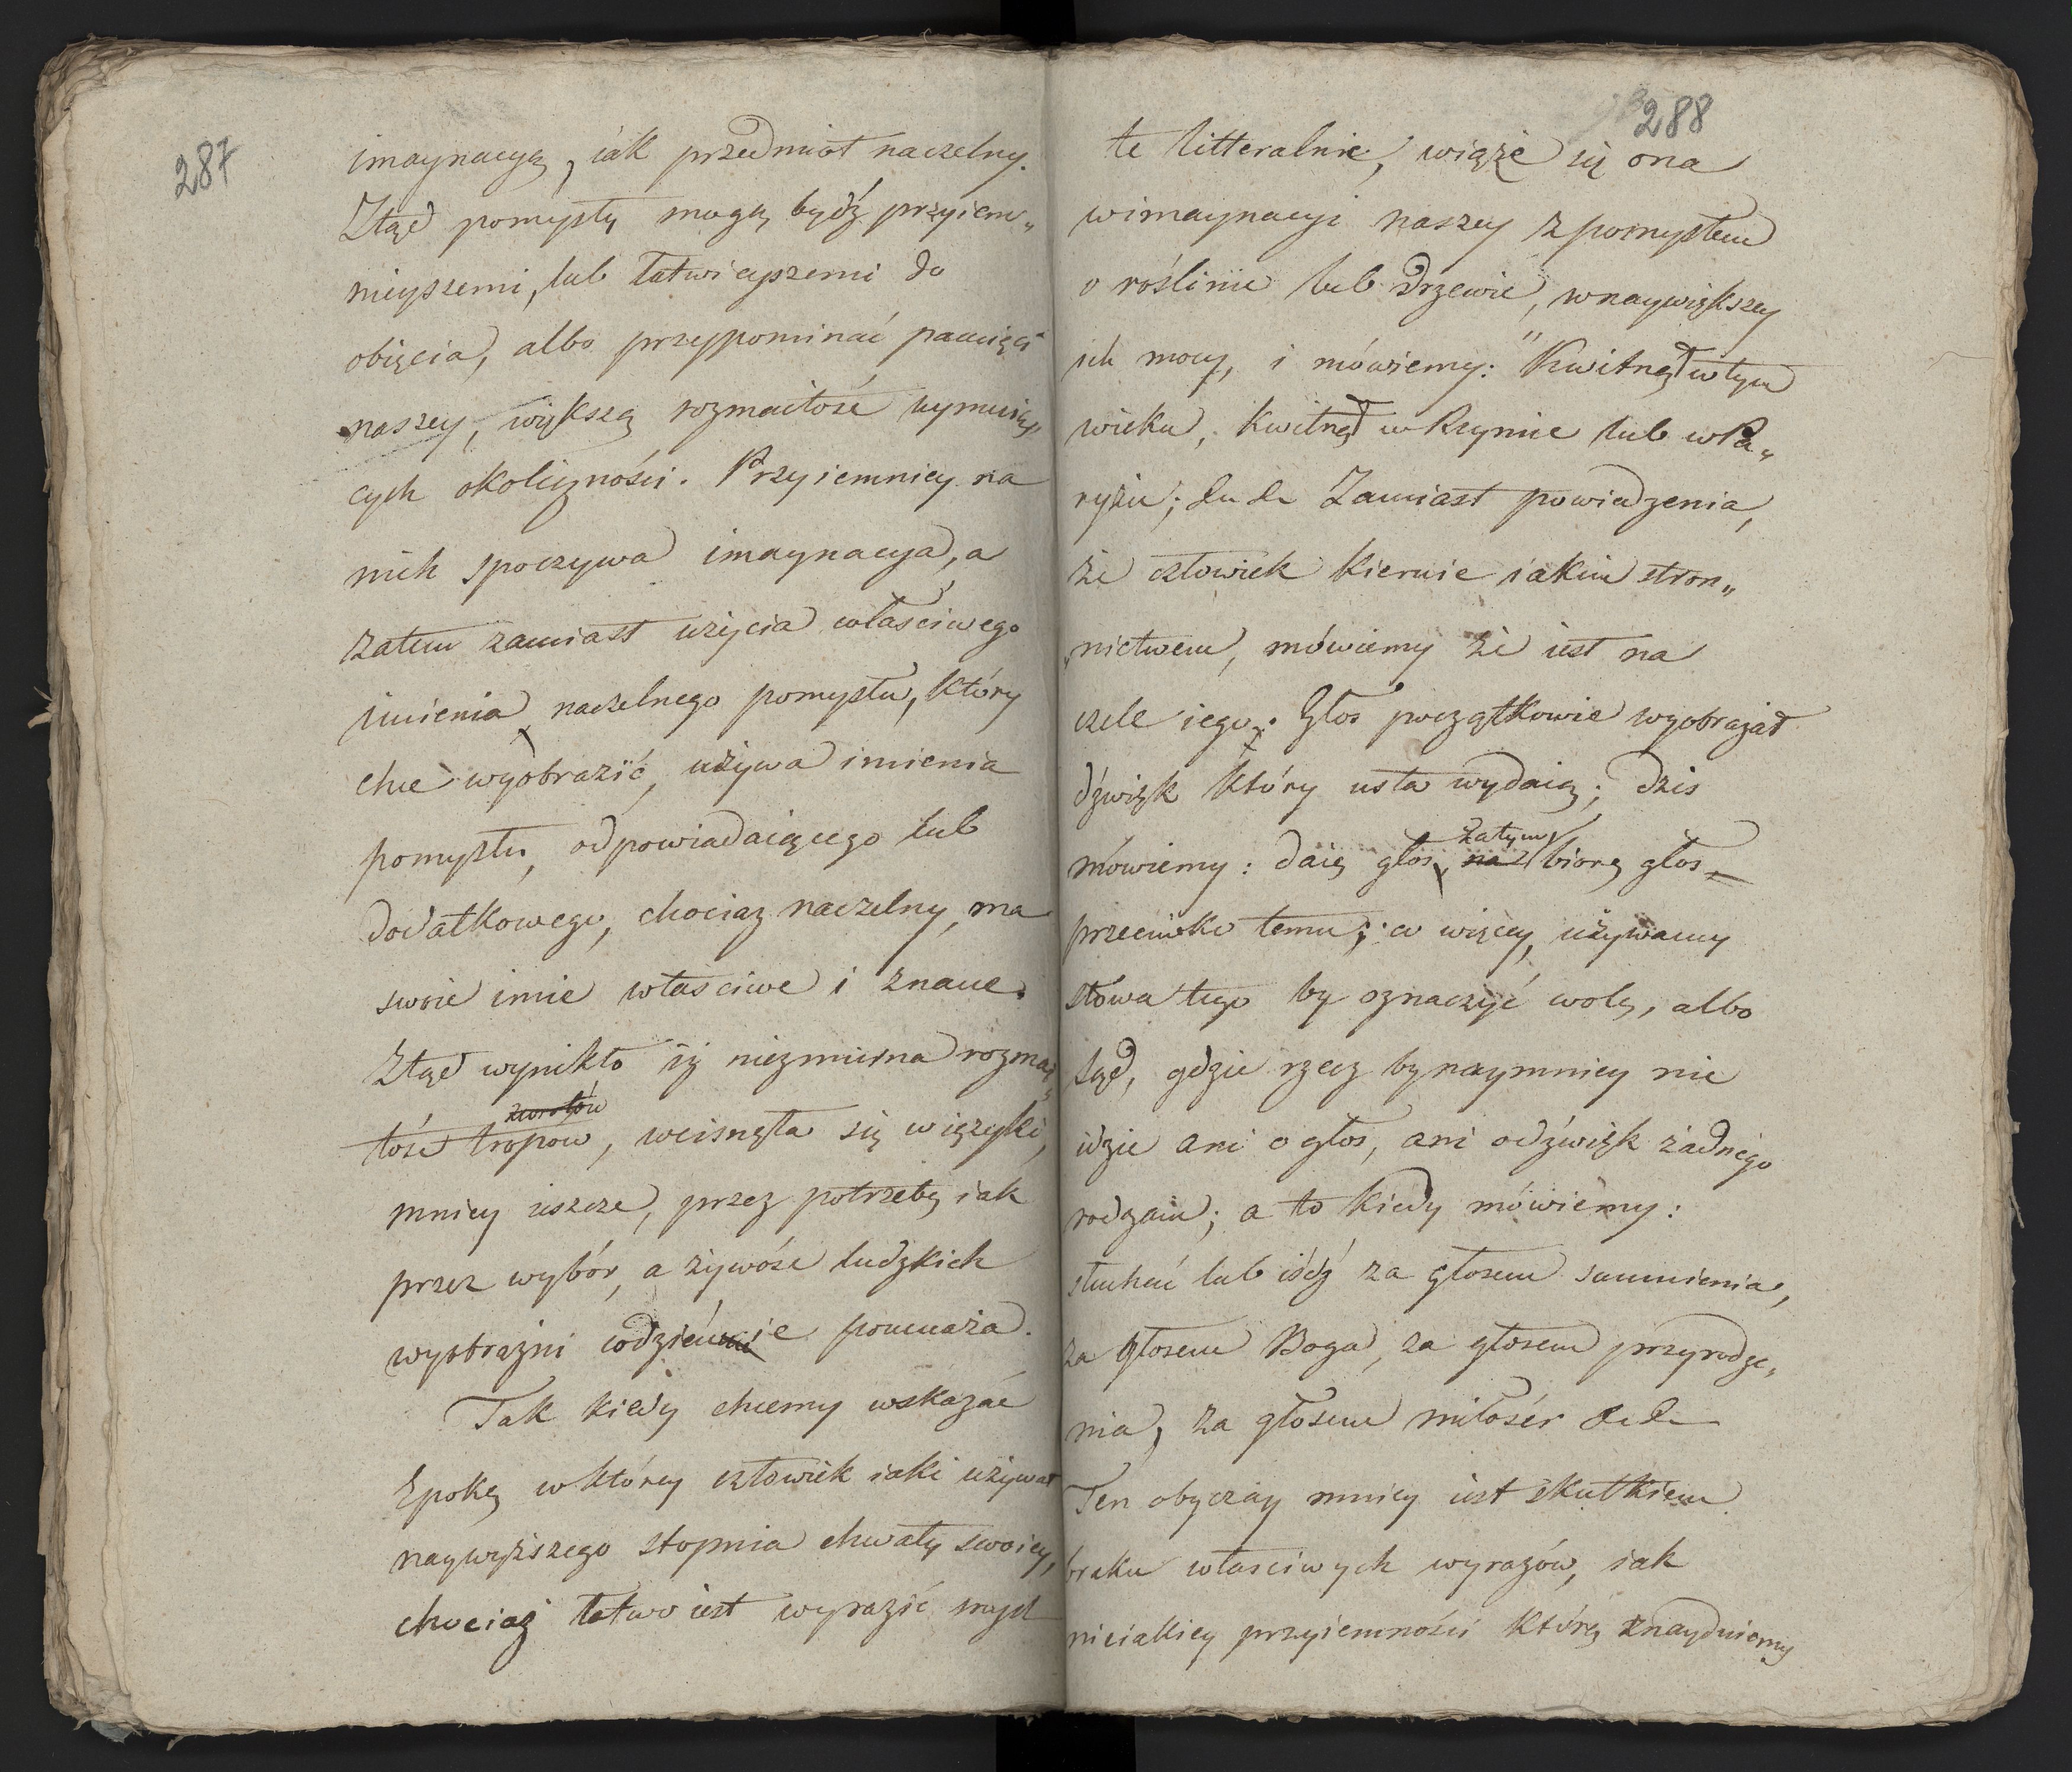 287
imaynacyą, iak przedmiot naczelny.
Ztąd pomysły mogą bydź przyiem„
nieyszemi, lub łatwieyszemi do
obięcia, albo przypominać pamięci
naszey, większą rozmaitość uymuią„
cych okoliczności. Przyiemniey na
nich spoczywa imaynacya, a
zatem zamiast użycia właściwego
imienia naczelnego pomysłu, który
chce wyobrazić, używa imienia
pomysłu, odpowiadaiącego lub
dodatkowego, chociaz naczelny, ma
swoie imie właściwe i znane.
Ztąd wynikło iż niezmierna rozmai„
zwrotów
tość tropow, wcisnęła się w ięzyki,
mniey ieszcze, przez potrzebę iak
przez wybór, a żywość ludzkich
wyobrazni codziennie pomnaża.
Tak kiedy chcemy wskazać
Epokę w którey człowiek iaki używał
naywyższego stopnia chwały swoiey,
chociaż łatwo iest wyrazić myśl
288
te litteralnie, wiąże się ona
w imaynacyi naszey z pomysłem
o roślinie lub drzewie, w naywiększey
ich mocy, i mówiemy: "Kwitnął w tym
wieku, kwitnął w Rzymie lub w Pa„
ryżu; &c &c Zamiast powiedzenia,
że człowiek kieruie iakim stron„
nictwem, mówiemy że iest na
czele iego. Głos początkowie wyobrażał
dźwięk który usta wydaią; dzis
zatym
mówiemy: daię głos, na biorę głos
przeciwko temu; co więcey, używamy
słowa tego by oznaczyć wolę, albo
sąd, gdzie rzecz bynaymniey nie
idzie ani o głos, ani o dźwięk żadnego
rodzaiu; a to kiedy mówiemy:
słuchać lub iśdź za głosem sumnienia,
za głosem Boga, za głosem przyrodze„
nia, za głosem miłości &c &c
Ten obyczay mniey iest skutkiem
braku właściwych wyrazów, iak
nieiakiey przyiemności którą znayduiemy